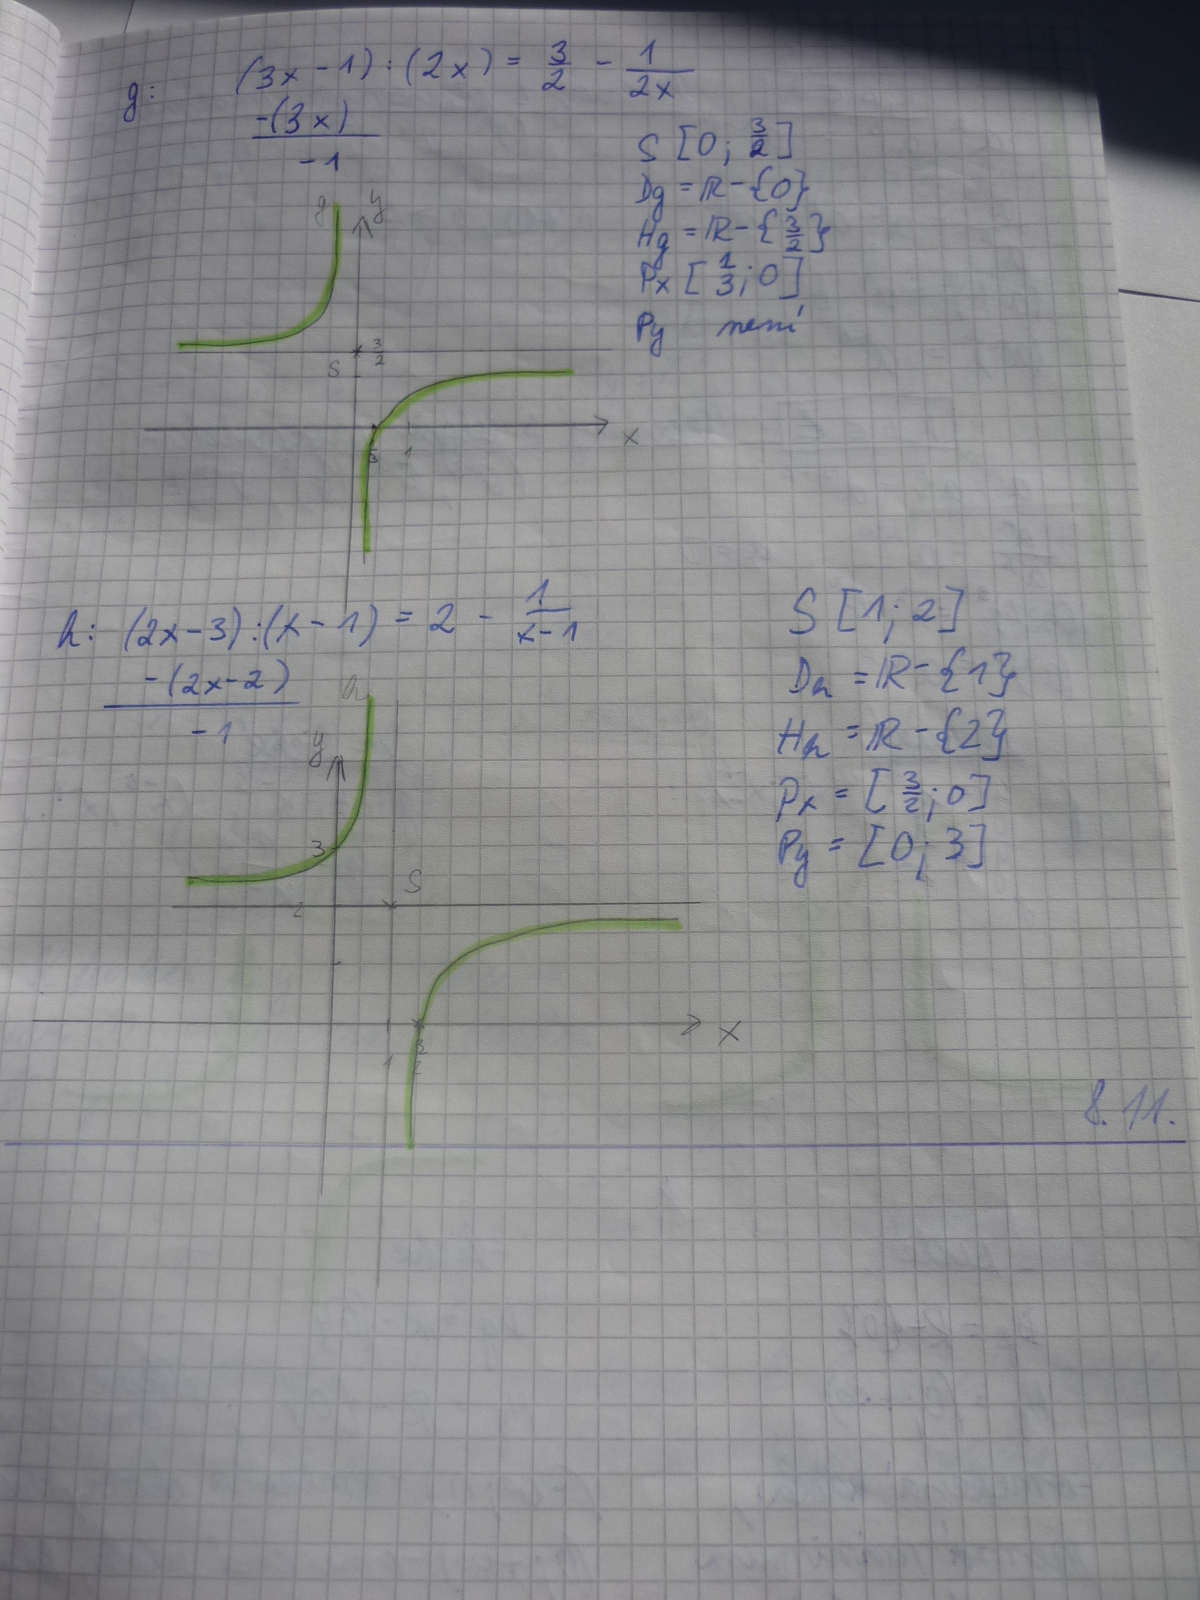 g: (3x - 1) : (2x) = 3/2 - 1/2x
-(3x)
-1
S [0; 3/2]
Dg = ℝ - {0}
Hg = ℝ - {3/2}
Px [1/3; 0]
Py není
g y
3/2
S
x
1
h: (2x - 3) : (x - 1) = 2 - 1/x-1
-(2x - 2)
-1
S [1; 2]
Dh = ℝ - {1}
Hh = ℝ - {2}
Px = [3/2; 0]
Py = [0; 3]
h
y
3
S
2
x
1 3/2
8.11.